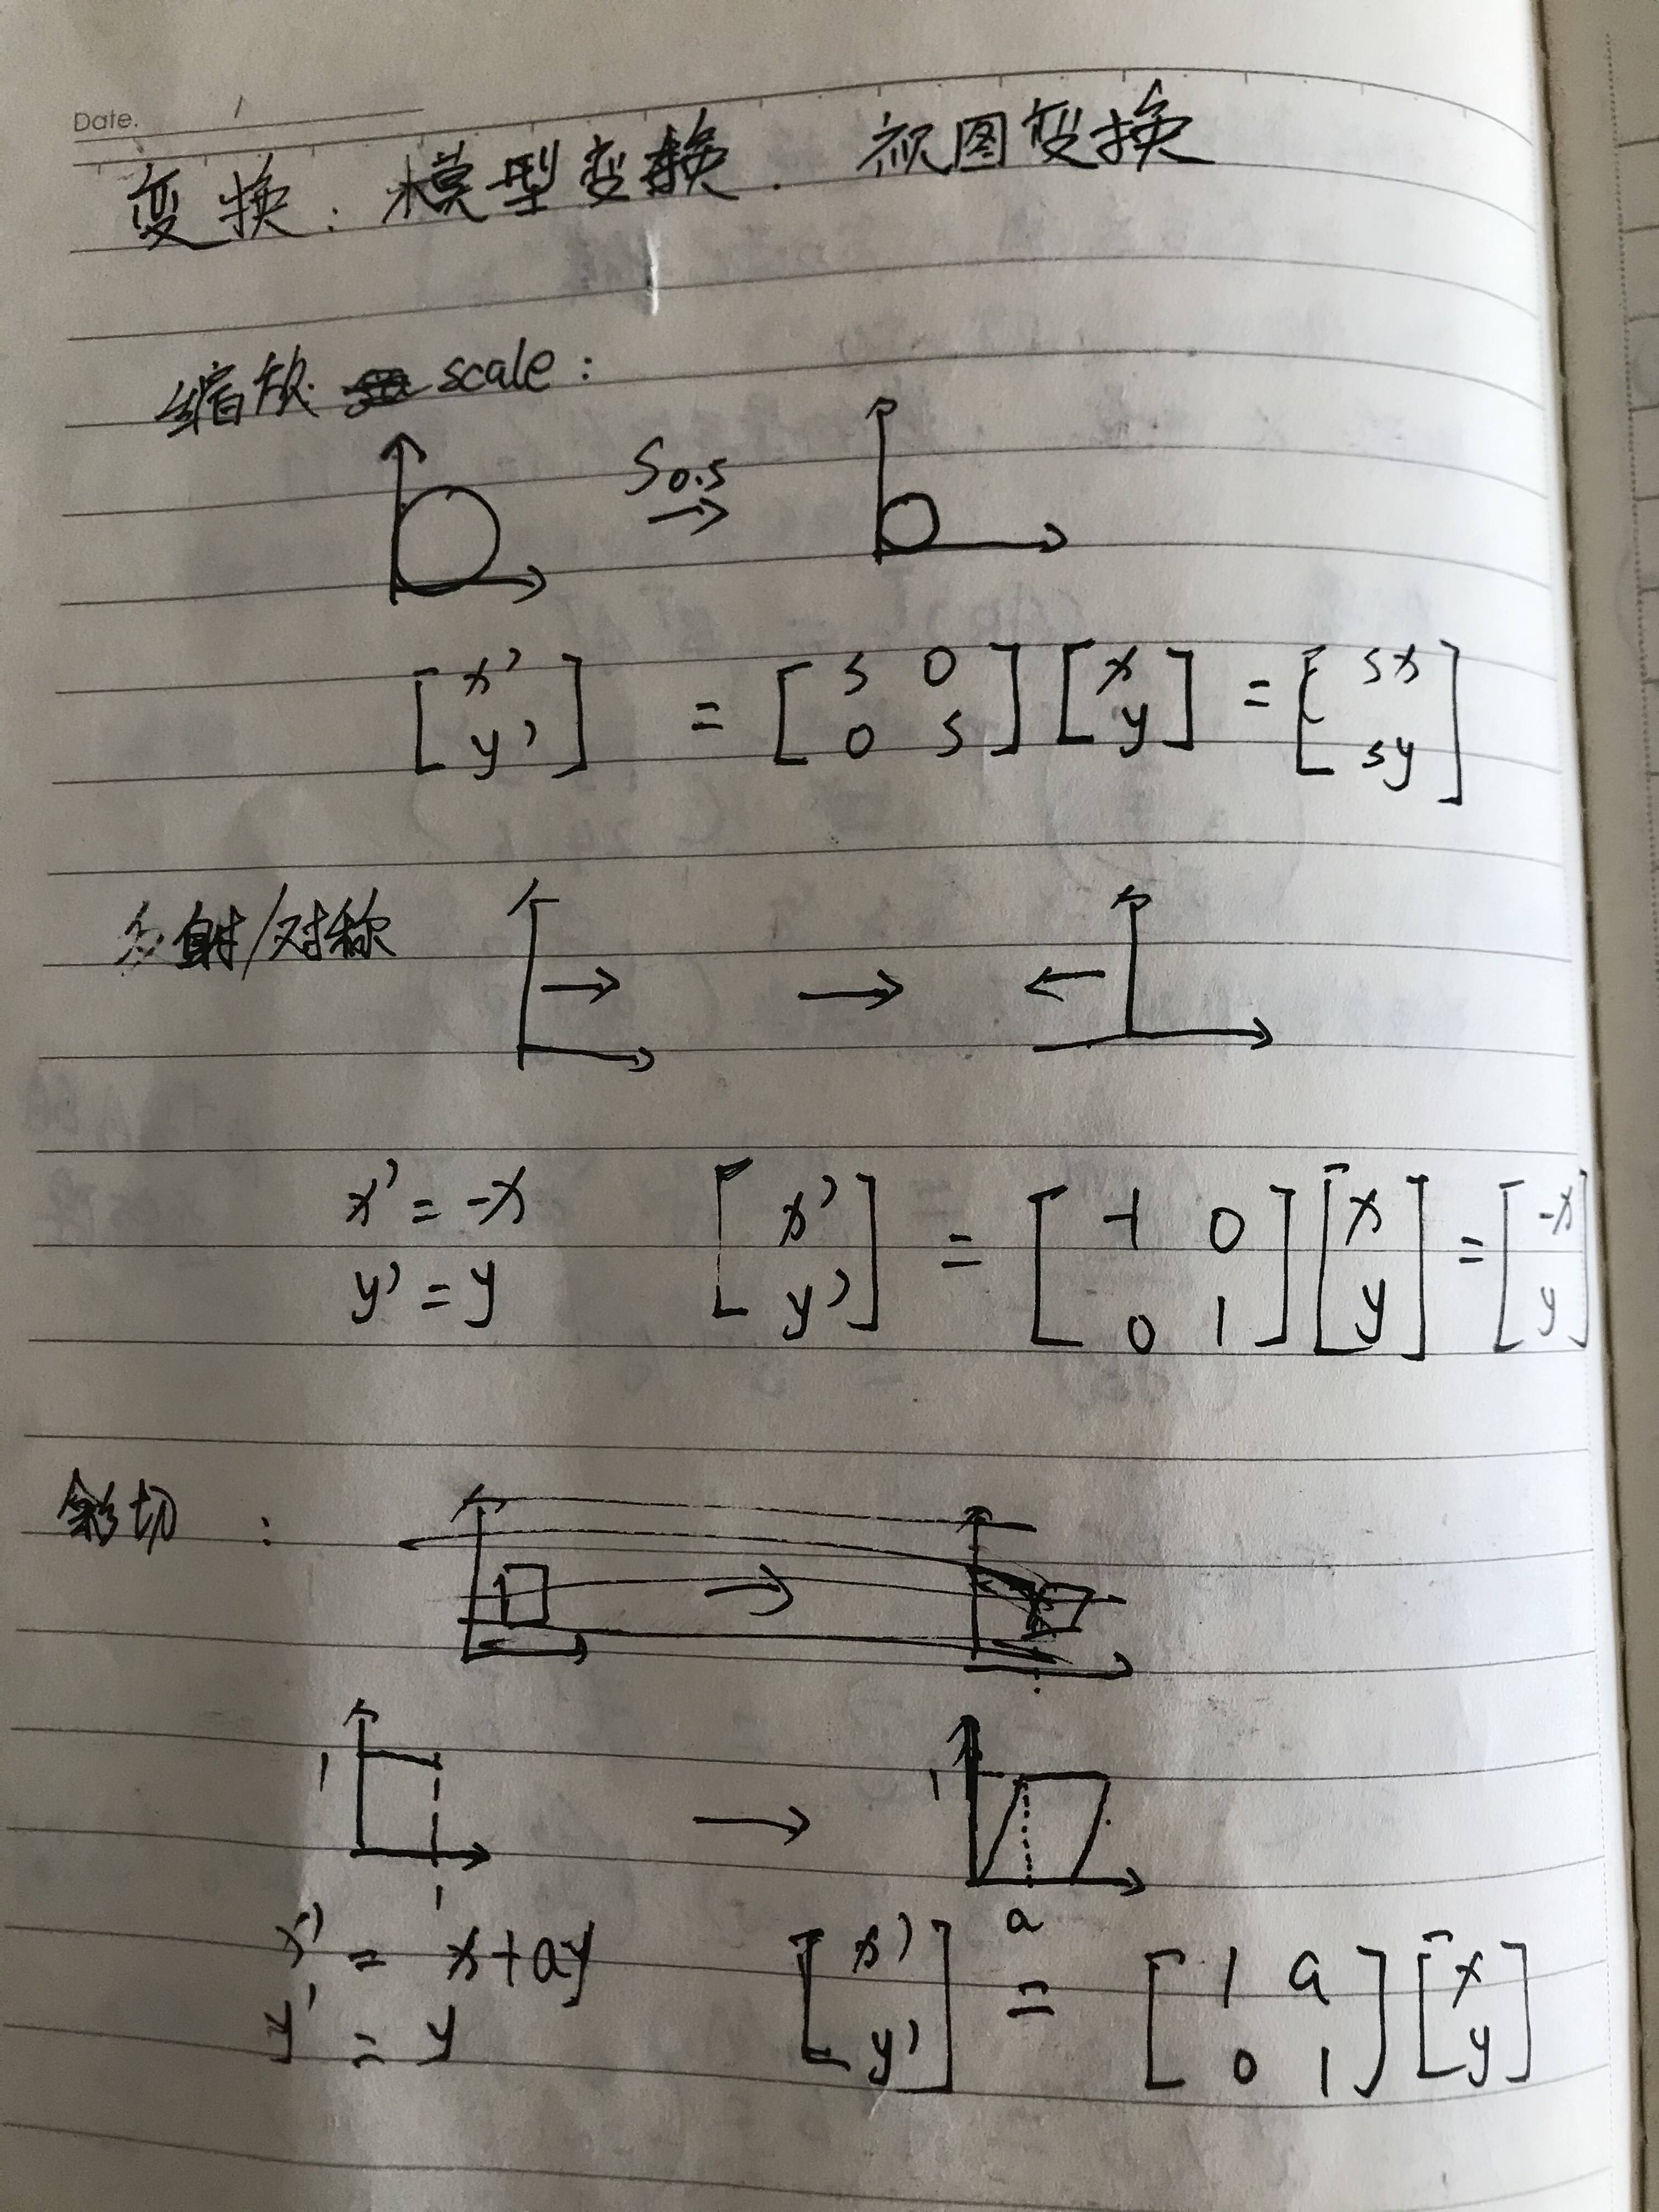 Date. /
变换: 模型变换. 视图变换
缩放 scale:
S0.5 →
[x' y'] = [s 0 0 s] [x y] = [sx sy]
射/对称
x' = -x
y' = y
[x' y'] = [-1 0 0 1] [x y] = [-x y]
切:
1 1 → 1 a
x' = x+ay
y' = y
[x' y'] = [1 a 0 1] [x y]